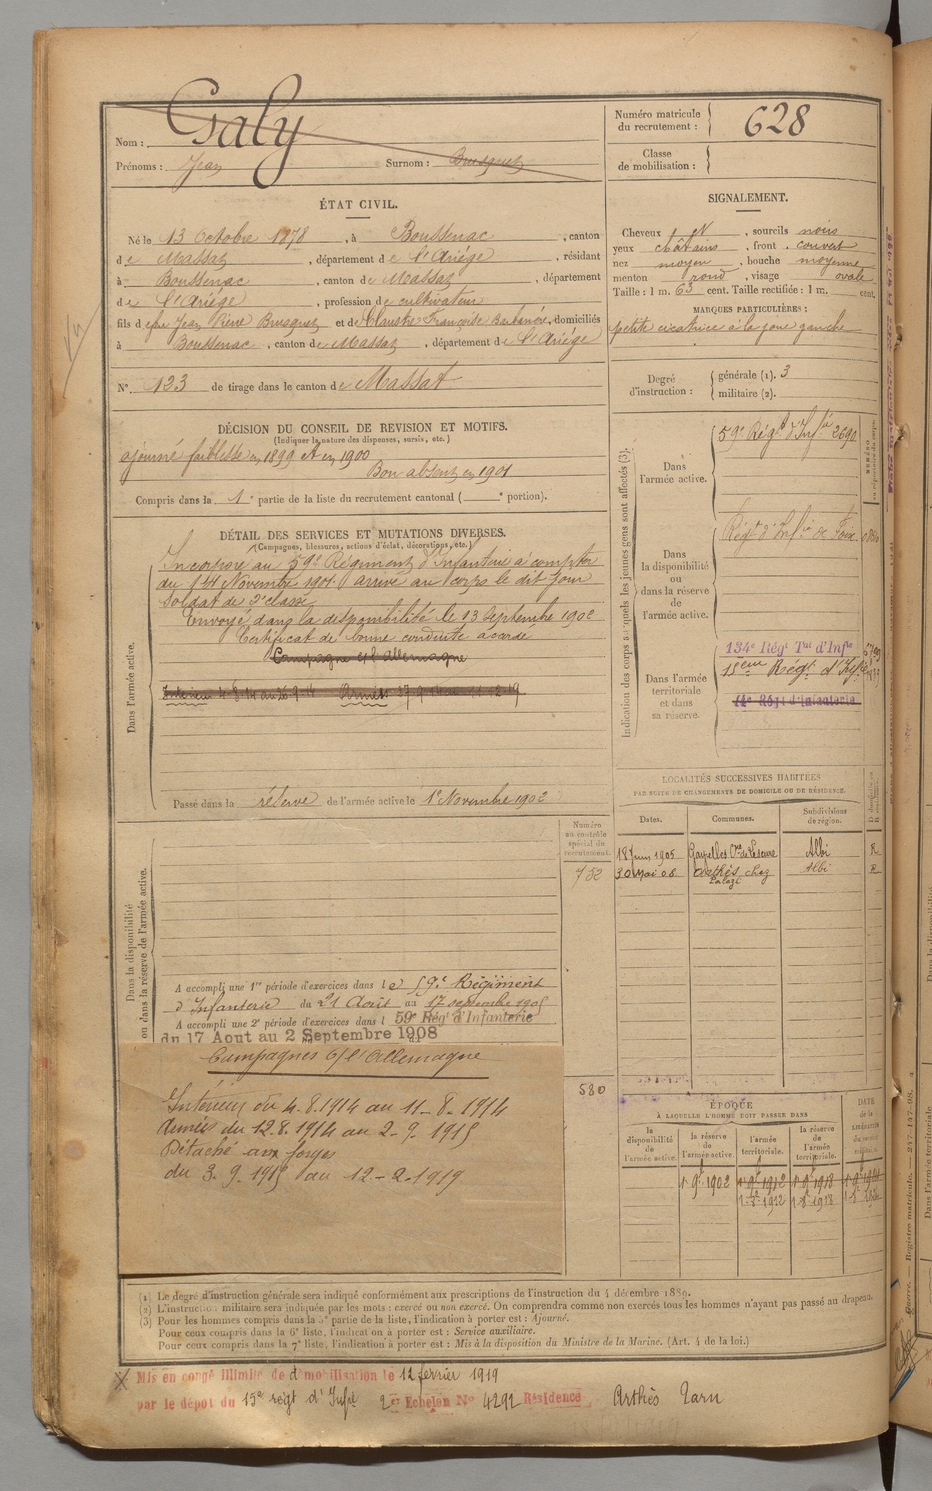 Nom : Galy
Prénoms : Jean Surnom : Busquet
Numéro matricule du recrutement : 628
Classe de mobilisation :
ÉTAT CIVIL.
Né le 13 Octobre 1878, à Boussenac, canton
de Massat, département de l'Ariége, résidant
à Boussenac, canton de Massat, département
de l'Ariége, profession de cultivateur
fils de feu Jean Pierre Busquet et de Claustre Françoise, domiciliés
à Boussenac, canton de Massat, département de l'Ariége
N° 123 de tirage dans le canton de Massat
SIGNALEMENT.
Cheveux N, sourcils noirs
yeux châtains, front couvert
nez moyen, bouche moyenne
menton rond, visage ovale
Taille : 1 m. 63 cent. Taille rectifiée : 1 m. cent.
MARQUES PARTICULIÈRES :
petite cicatrice à la joue gauche
Degré d'instruction : générale (1). 3
militaire (2).
DÉCISION DU CONSEIL DE REVISION ET MOTIFS.
(Indiquer la nature des dispenses, sursis, etc.)
ajourné faiblesse en 1899 et en 1900
Bon absent en 1901
Compris dans la 1e partie de la liste du recrutement cantonal ( e portion).
DÉTAIL DES SERVICES ET MUTATIONS DIVERSES.
(Campagnes, blessures, actions d'éclat, décorations, etc.)
Dans l'armée active.
Incorporé au 59e Régiment d'Infanterie à compter
du 14 Novembre 1901 arrivé au corps le dit jour
soldat de 2e classe
Envoyé dans la disponibilité le 13 Septembre 1902
Certificat de bonne conduite accordé
Campagne c/ l'Allemagne
Intérieur 4-8-14 au 26-9-14 Armées 27-9-14 au 11-12-19
Passé dans la réserve de l'armée active le 1er Novembre 1902
Indication des corps auxquels les jeunes gens sont affectés (3).
Dans l'armée active.
59e Régt d'Infie 2690
Dans la disponibilité ou dans la réserve de l'armée active.
Régt d'Infie de Foix
Dans l'armée territoriale et dans sa réserve.
134e Régt Tal d'Infie
15eme Régt d'Infie
14e Régt d'Infanterie
LOCALITÉS SUCCESSIVES HABITÉES
PAR SUITE DE CHANGEMENTS DE DOMICILE OU DE RÉSIDENCE.
Dates. Communes. Subdivisions de région.
18 Juin 1905 Albi R
30 Mai 08 Arthès chez Albi R
Numéro au contrôle spécial du recrutement.
752
580
Dans la disponibilité ou dans la réserve de l'armée active.
A accompli une 1re période d'exercices dans le 59e Régiment
d'Infanterie du 21 Août au 17 septembre 1905
A accompli une 2e période d'exercices dans l 59e Rég' d'Infanterie
du 17 Aout au 2 Septembre 1908
Campagnes c/ l'Allemagne
Intérieur du 4.8.1914 au 11-8-1914
Armées du 12.8.1914 au 2-9-1915
Détaché aux forges
du 3-9-1915 au 12-2-1919
ÉPOQUE
À LAQUELLE L'HOMME DOIT PASSER DANS
la disponibilité de l'armée active. la réserve de l'armée active. l'armée territoriale. la réserve de l'armée territoriale.
1er 9bre 1902 1er 9bre 1912 1er 9bre 1918
1-8-1912 1-8-1918
(1) Le degré d'instruction générale sera indiqué conformément aux prescriptions de l'instruction du 4 décembre 1889.
(2) L'instruction militaire sera indiquée par les mots : exercé ou non exercé. On comprendra comme non exercés tous les hommes n'ayant pas passé au drapeau.
(3) Pour les hommes compris dans la 5e partie de la liste, l'indication à porter est : Ajourné.
Pour ceux compris dans la 6e liste, l'indication à porter est : Service auxiliaire.
Pour ceux compris dans la 7e liste, l'indication à porter est : Mis à la disposition du Ministre de la Marine. (Art. 4 de la loi.)
Mis en congé illimité de démobilisation le 12 février 1919
par le dépôt du 15e régt d'Infie 2e Echelon N° 4292 Résidence Arthès Tarn